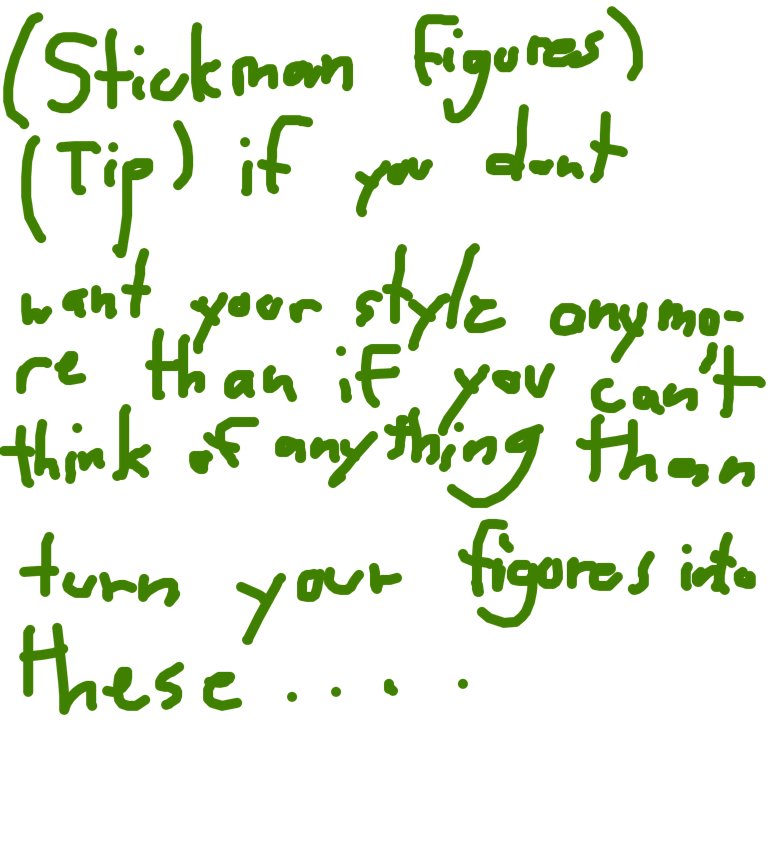 (Stickman figures)
(Tip) if you dont
want your style anymo-
re than if you can't
think of anything than
turn your figures into
these....